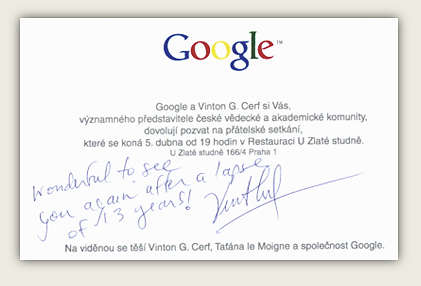 Google™
Google a Vinton G. Cerf si Vás,
významného představitele české vědecké a akademické komunity,
dovolují pozvat na přátelské setkání,
které se koná 5. dubna od 19 hodin v Restauraci U Zlaté studně.
U Zlaté studně 166/4 Praha 1
Wonderful to see
you again after a lapse
of 13 years!
Vint Cerf
Na viděnou se těší Vinton G. Cerf, Taťána le Moigne a společnost Google.